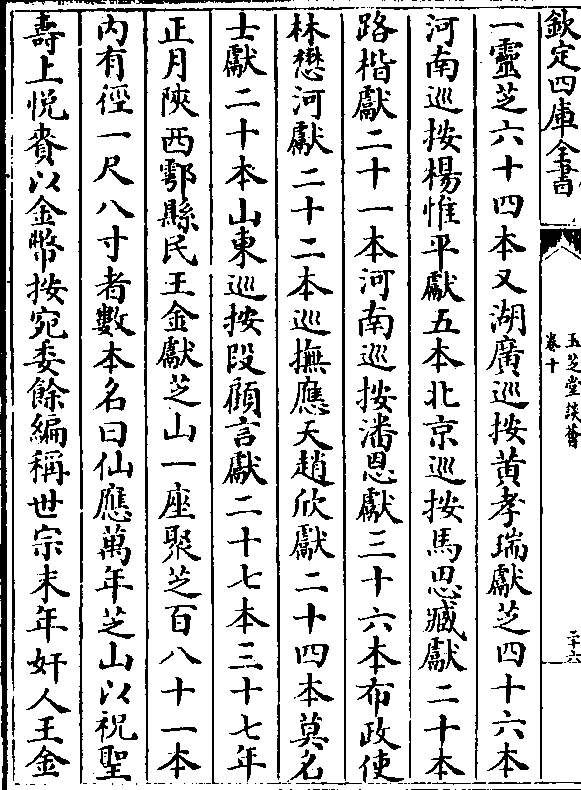 欽定四庫全書
玉芝堂談薈
卷十
二十六
一靈芝六十四本又湖廣巡按黄孝瑞獻芝四十六本
河南巡按楊惟平獻五本北京巡按馬思臧獻二十本
路楷獻二十一本河南巡按潘恩獻三十六本布政使
林懋河獻二十二本巡撫應天趙欣獻二十四本莫名
士獻二十本山東巡按段顧言獻二十七本三十七年
正月陝西鄠縣民王金獻芝山一座聚芝百八十一本
内有徑一尺八寸者數本名曰仙應萬年芝山以祝聖
壽上悦賚以金幣按宛委餘編稱世宗末年奸人王金